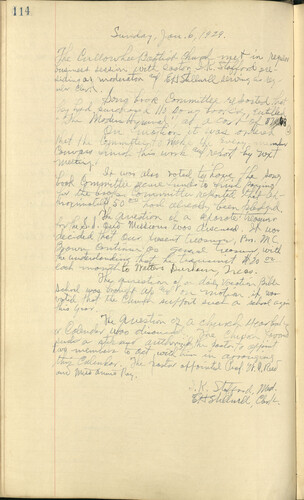 114
Sunday, Jan. 6, 1929.
The Cullowhee Baptist Church met in regular
business session with Pastor I.K. Stafford pre-
siding as moderator & E.H. Stillwell serving as reg-
ular Clerk.
Song book Committee reported that
they had purchased 115 Song books, entitled
"The Modern Hymnal" at a cost of
On motion it was ordered
that the Committee to make up every
Canvass finish this work & report by next
meeting.
It was also voted to have the song
book Committee secure funds to finish paying
for the books. Committee reported that ap-
proximately $50.00 had already been pledged.
The question of a separate treasurer
for and Missions was discussed. It was
decided that our present treasurer, Mrs. McC.
Brown continue as general treasurer with
the understanding that he transmit $ 00
each month to Walters Durham, Treas.
The question of a daily Vacation Bible
School was brought up. On motion it was
voted that the Church support such a school again
this year.
The question of a Church
or Calendar was discussed. The Church
authorized the pastor to appoint
two members to act with him in arranging
this Calendar. The pastor appointed Prof. W.
and Miss Annie Ray.
I.K. Stafford, Mod.
E.H. Stillwell, Clerk.